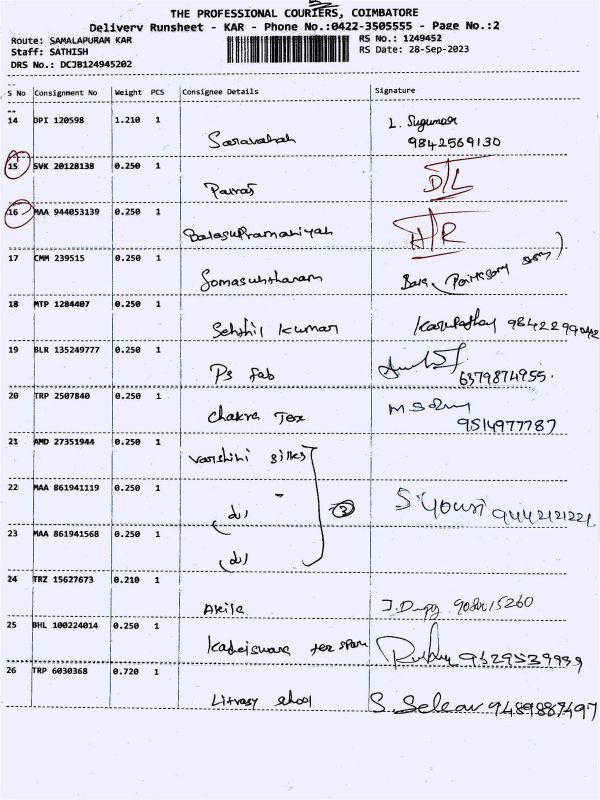 THE PROFESSIONAL COURIERS, COIMBATORE
Delivery Runsheet - KAR - Phone No.:0422-3505555 - Page No.:2
Route: SAMALAPURAM KAR RS No.: 1249452
Staff: SATHISH RS Date: 28-Sep-2023
DRS No.: DCJB124945202
S No Consignment No Weight PCS Consignee Details Signature
14 DPI 120598 1.210 1 L. Sugumar
Saravanan 9842569130
15 SVK 20128138 0.250 1 D/L
16 MAA 944053139 0.250 1 H/R
Balasupramaniyan
17 CMM 239515 0.250 1
18 MTP 1284407 0.250 1
Senthil Kumar
19 BLR 135249777 0.250 1
P3 fab 6379874955
20 TRP 2507840 0.250 1
Chakra Tex 9514977787
21 AMD 27351944 0.250 1
Varshini silks
22 MAA 861941119 0.250 1
(dl) 3
23 MAA 861941568 0.250 1
(dl)
24 TRZ 15627673 0.210 1
Akila
25 BHL 100224014 0.250 1
26 TRP 6030368 0.720 1
9489887497